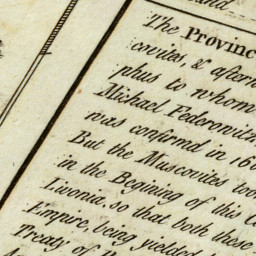 and
The Provinc
covites, & aftern
phus to whom
Michael Federovitz
was confirmd in 16
But the Muscovites too
in the Begining of this C
Livonia, so that both these
Empire, being yielded b
Treaty of